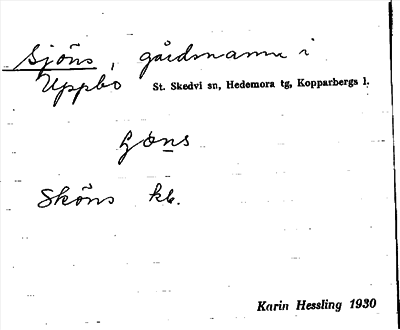 Sjöns, gårdsnamn i
Uppbo St. Skedvi sn, Hedemora tg, Kopparbergs l.
Sköns kb.
Karin Hessling 1930